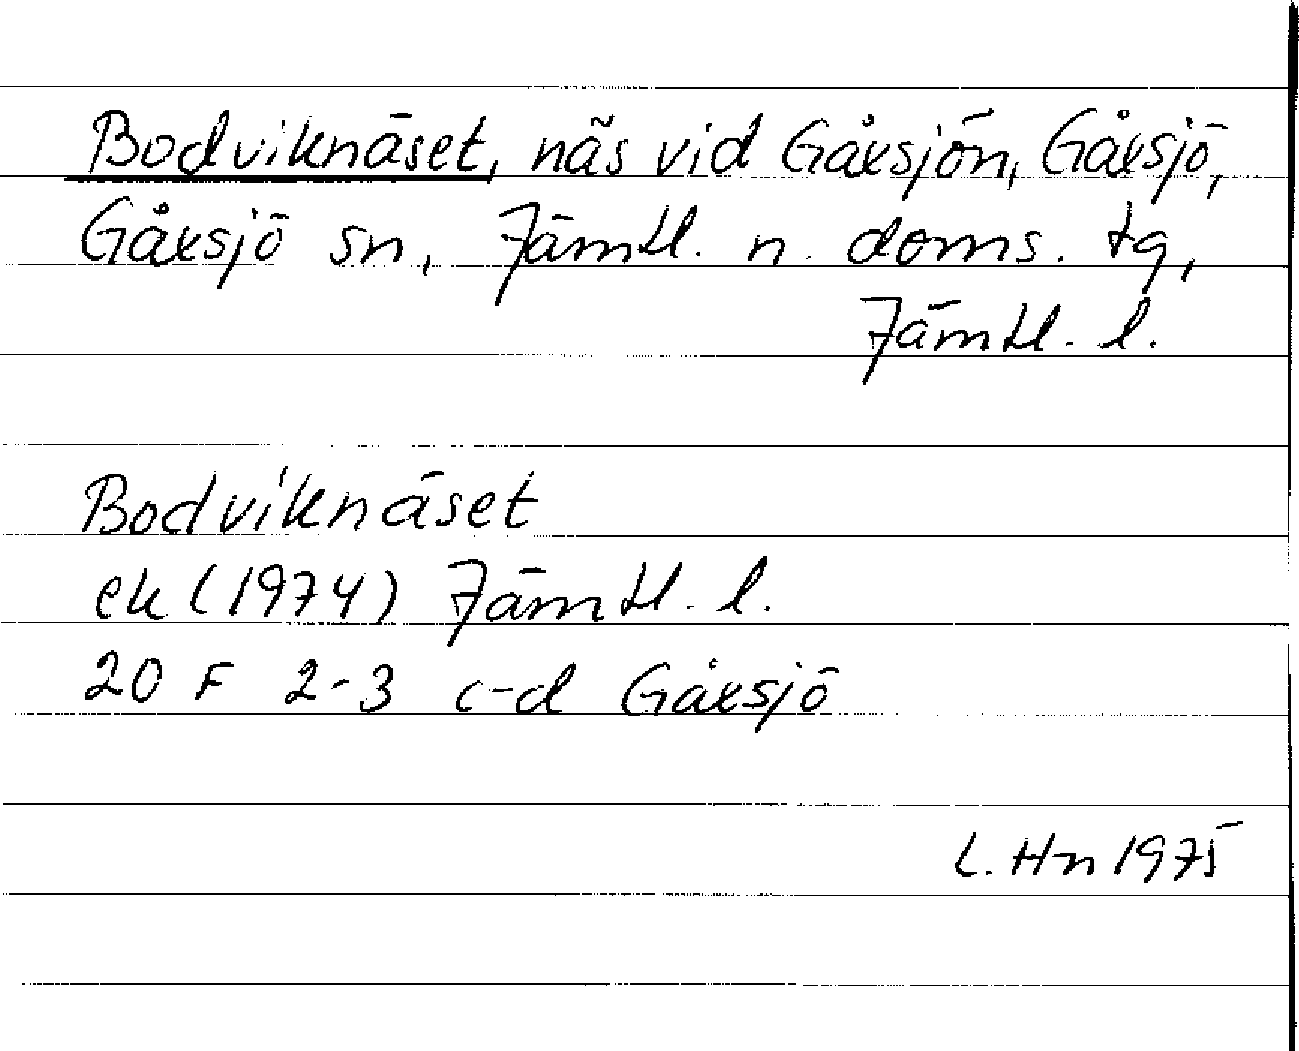 Bodviknäset, näs vid Gåxsjön, Gåxsjö,
Gåxsjö sn, Jämtl. n. doms. tg,
Jämtl. l.
Bodviknäset
ek (1974) Jämtl. l.
20 F 2-3 c-d Gåxsjö
L. Hn 1975